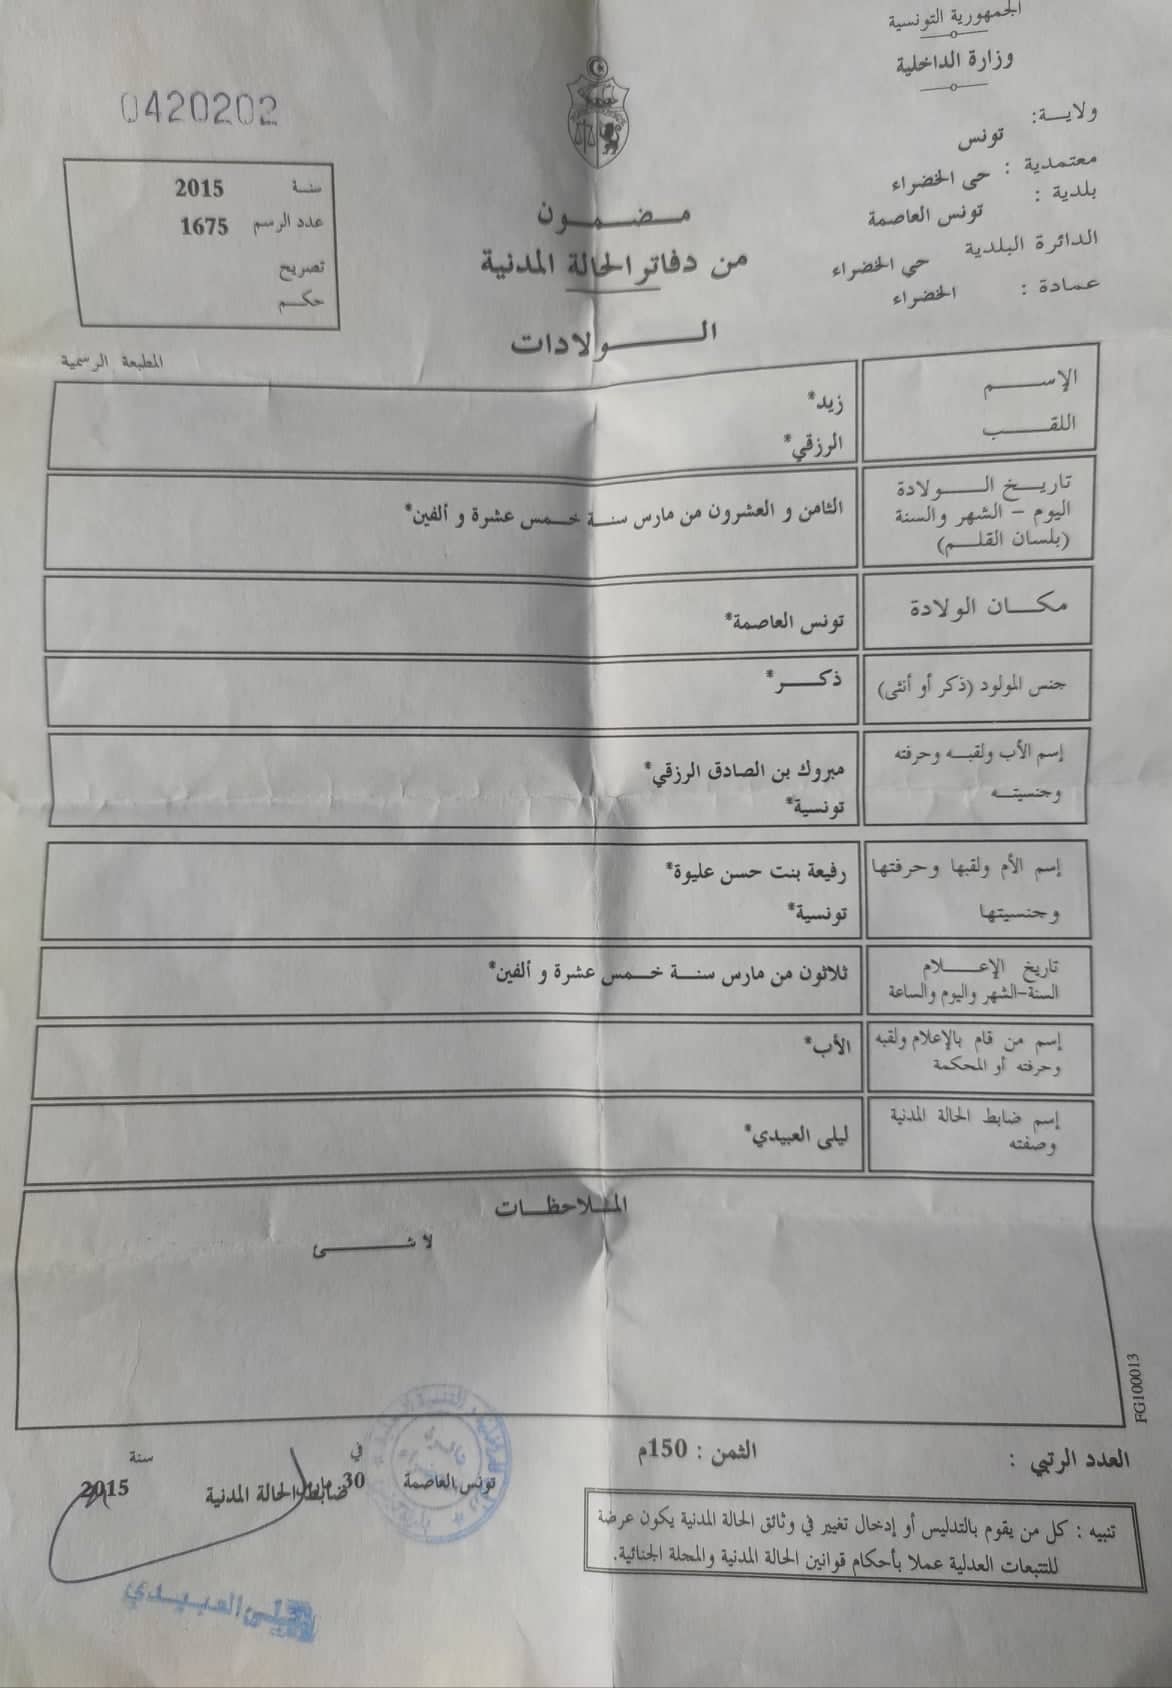 الجمهورية التونسية
وزارة الداخلية
ولاية: تونس
معتمدية : حي الخضراء
بلدية : تونس العاصمة
الدائرة البلدية حي الخضراء
عمادة : الخضراء
0420202
سنة 2015
عدد الرسم 1675
تصريح
حكم
المطبعة الرسمية
مضمون
من دفاتر الحالة المدنية
الولادات
الإسم زيد*
اللقب الرزقي*
تاريخ الولادة
اليوم - الشهر والسنة
(بلسان القلم)
الثامن و العشرون من مارس سنة خمس عشرة و ألفين*
مكان الولادة تونس العاصمة*
جنس المولود (ذكر أو أنثى) ذكر*
إسم الأب ولقبه وحرفته
وجنسيته
مبروك بن الصادق الرزقي*
تونسية*
إسم الأم ولقبها وحرفتها
وجنسيتها
رفيعة بنت حسن عليوة*
تونسية*
تاريخ الإعلام
السنة-الشهر واليوم والساعة
ثلاثون من مارس سنة خمس عشرة و ألفين*
إسم من قام بالإعلام ولقبه
وحرفته أو المحكمة
الأب*
إسم ضابط الحالة المدنية
وصفته
ليلى العبيدي*
الملاحظات
لا شئ
FG100013
العدد الرتبي :
الثمن : 150م
تنبيه : كل من يقوم بالتدليس أو إدخال تغيير في وثائق الحالة المدنية يكون عرضة
للتتبعات العدلية عملا بأحكام قوانين الحالة المدنية والمجلة الجنائية.
في سنة
تونس العاصمة 30 مارس 2015
ضابط الحالة المدنية
ليلى العبيدي